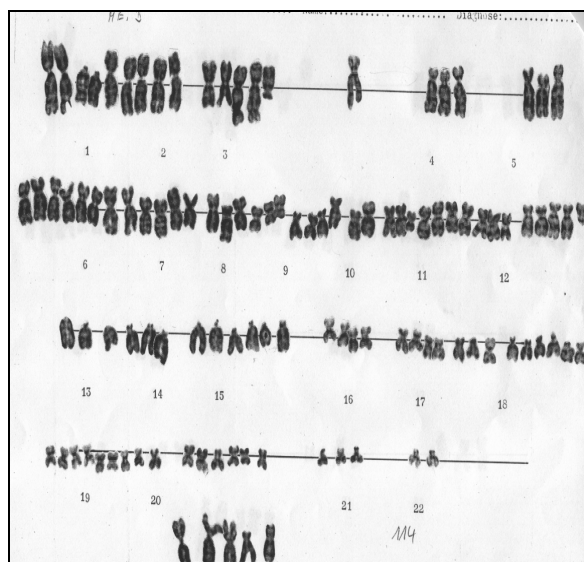 HE. J
Name:................ Diagnose:..........
1 2 3 4 5
6 7 8 9 10 11 12
13 14 15 16 17 18
19 20 21 22
114